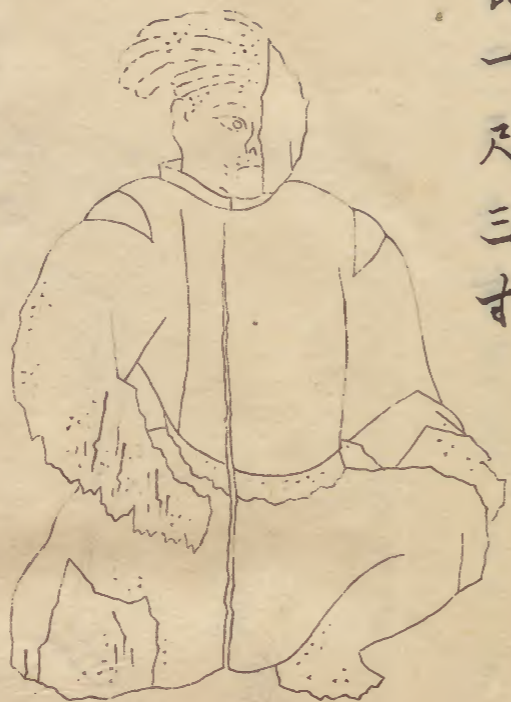 一尺三寸